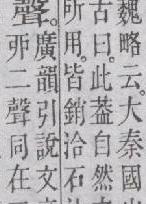 魏略云。大秦國
古曰。此葢自然
所用。皆銷洽石
聲。廣韻引說文
丣二聲同在